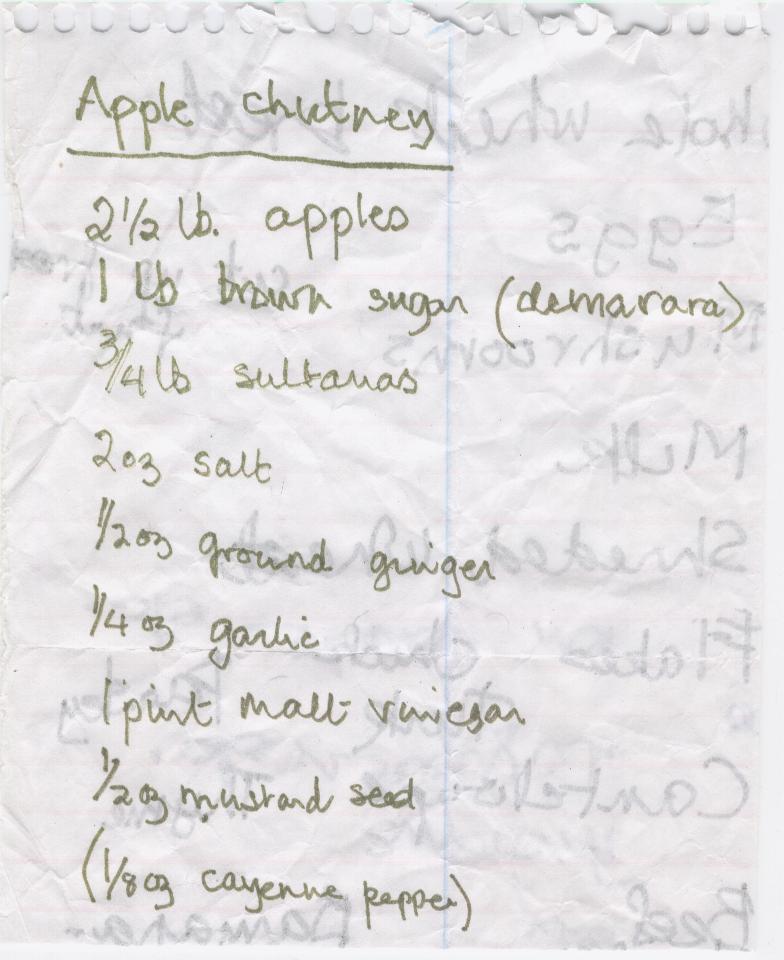 Apple chutney
2½ lb. apples
1 lb brown sugar (demarara)
3/4 lb sultanas
2oz salt
1/2oz ground ginger
1/4 oz garlic
1 pint malt vinegar
1/2oz mustard seed
(1/8oz cayenne pepper)
Eggs
Mushrooms
Milk